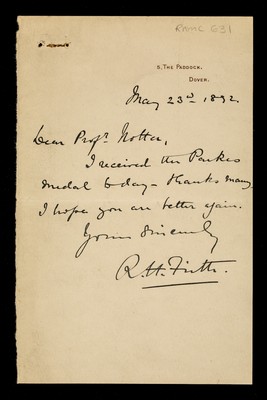 RAMC 631
2, The Paddock,
Dover.
May 23rd 1892.
Dear Profr. Notter,
I received the Parkes
medal today - thanks many
I hope you are better again.
Yours sincerely
R.H. Firth.